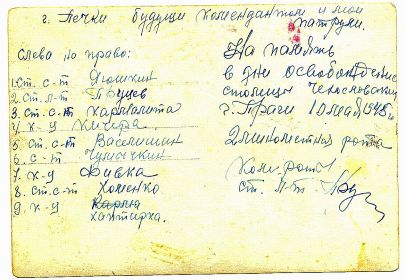 г. Печки будущи комендантом и мои
патрули.
Слева на право:
1. ст. с-т Яюшкин
2. ст. л-т Труев
3. ст. с-т Кармалита
4 к-у Кичера.
5. ст. с-т Васелишин
6. с-т Чумычкин
7. к-у Фивка
8. ст. с-т Хоменко
9. к-у
хантирка.
На память
в дни освобождение
столицы Чехословакии
г. Праги 10 мая 1945 г
2 минометная рота
Ком. роты
ст. л-т